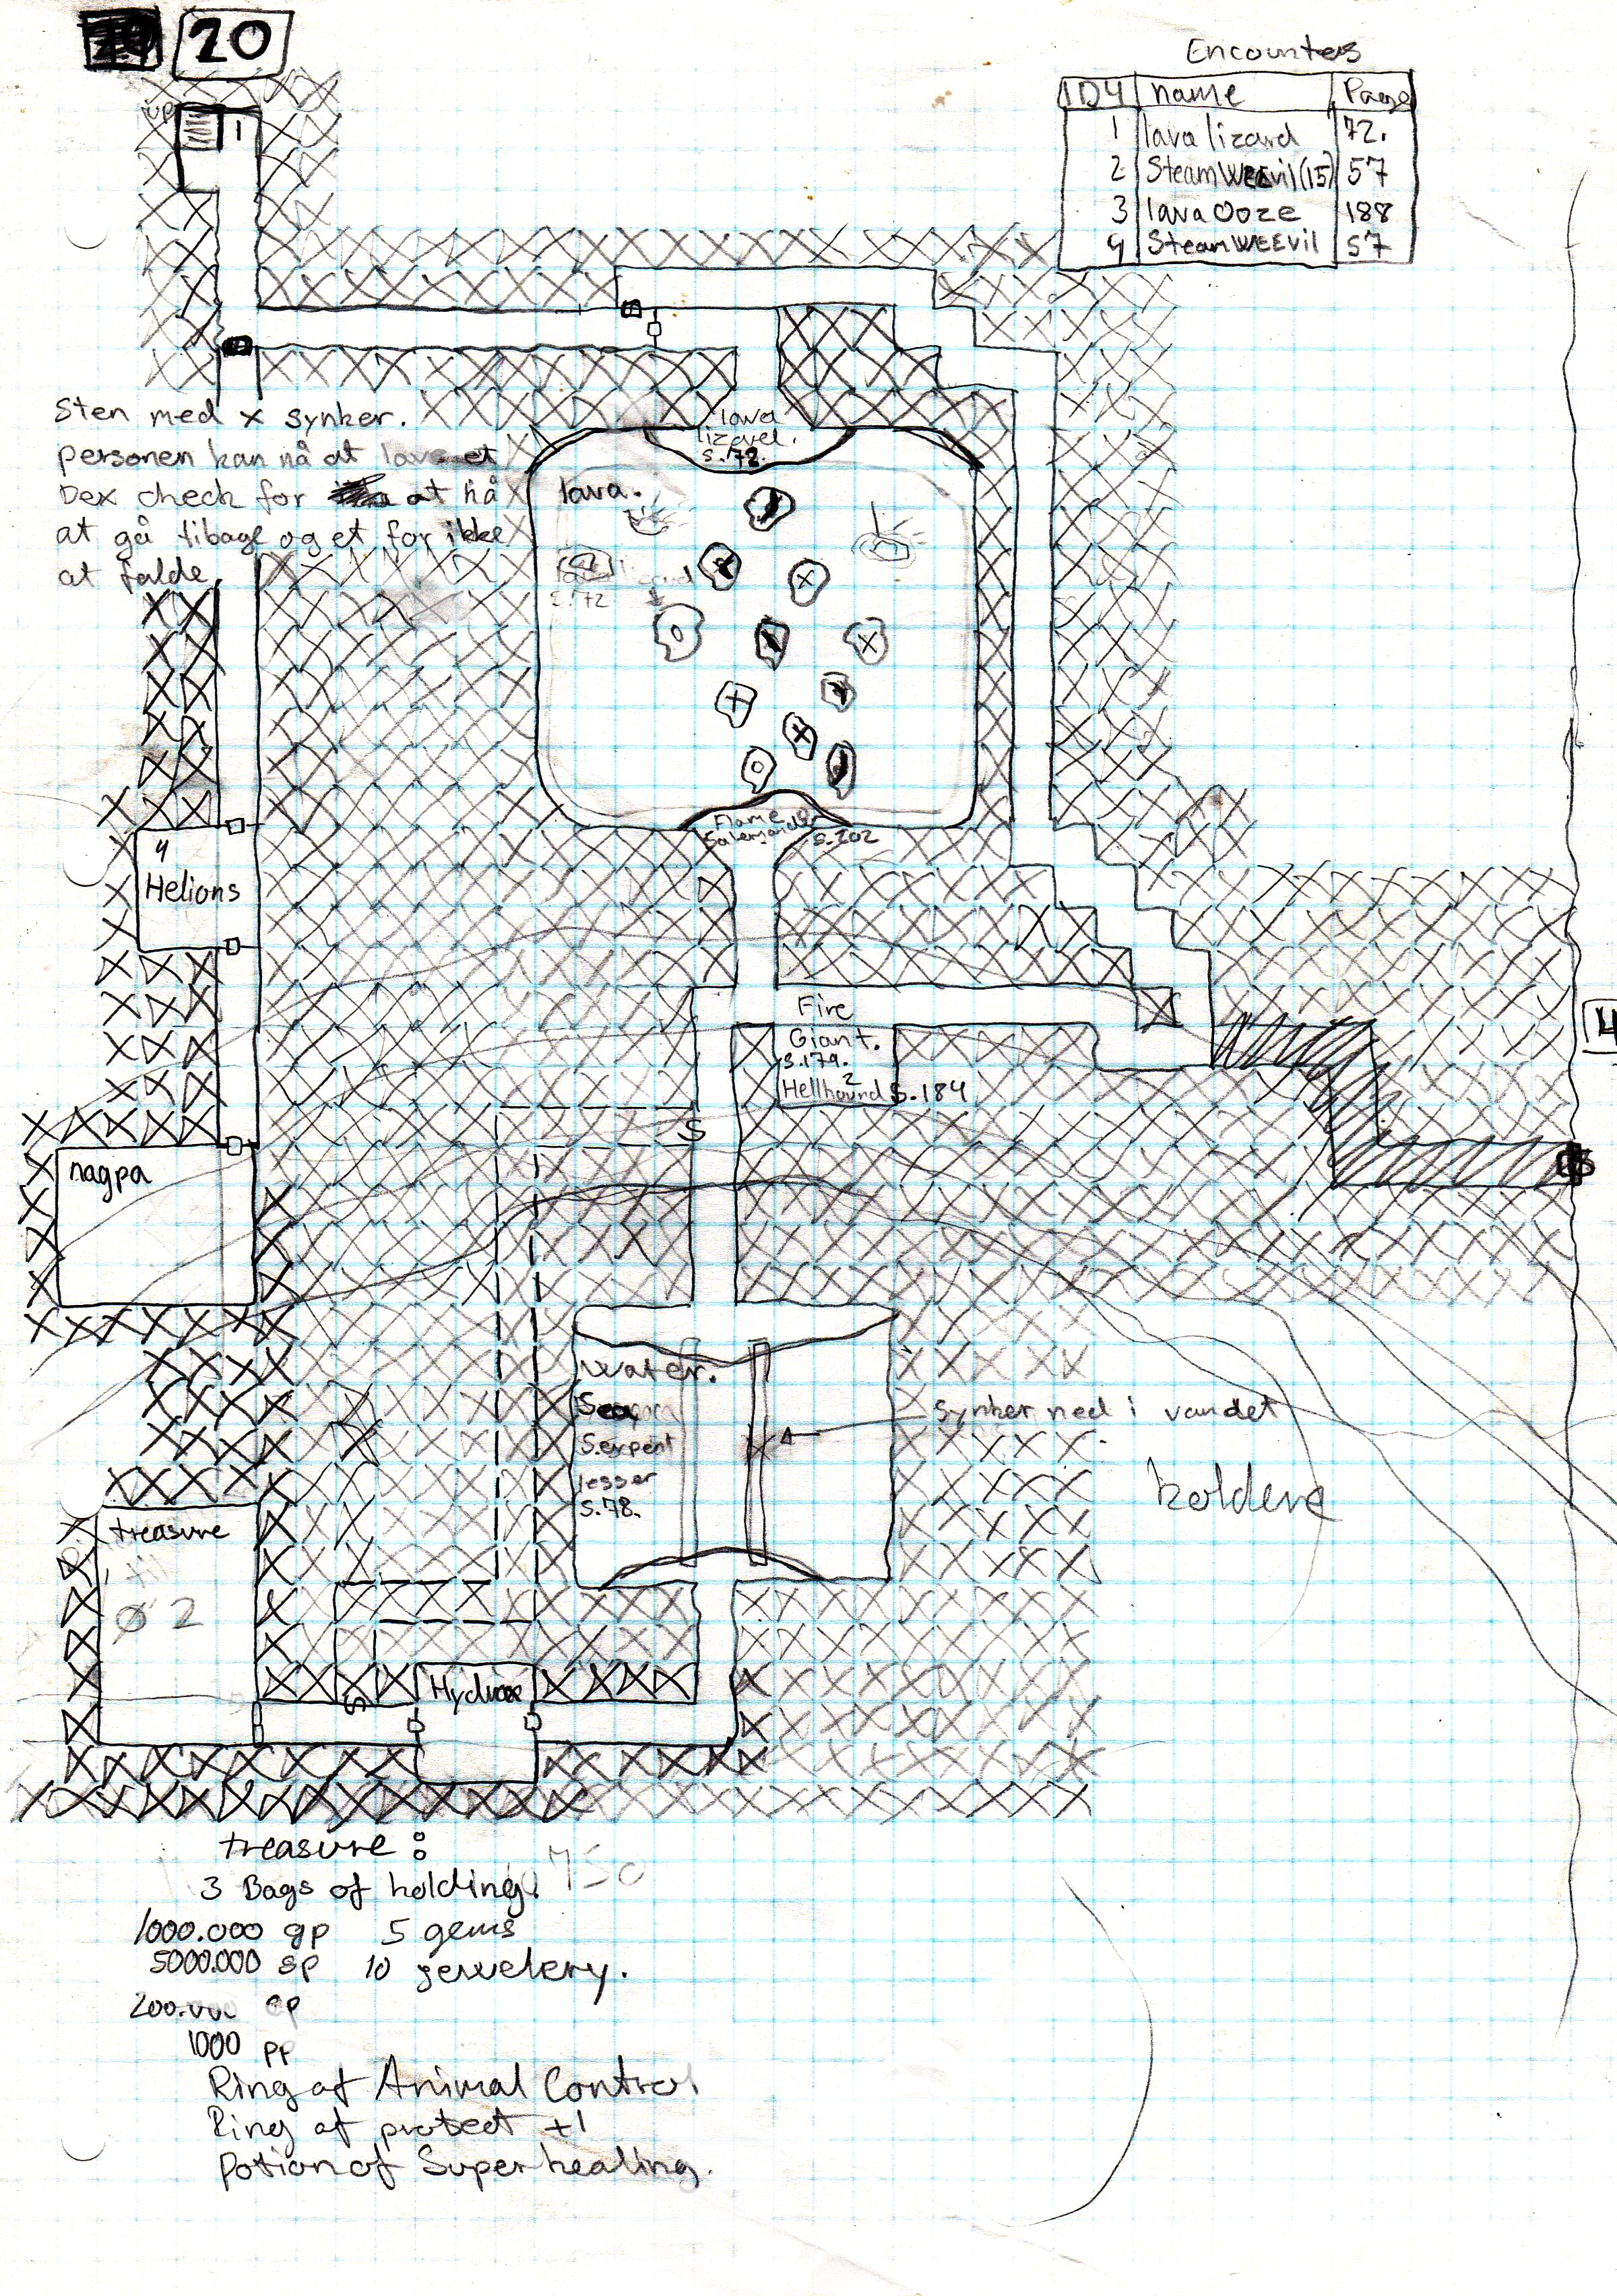 20
Encounters
1D4 name Page
1 lava lizard 72.
2 Steam WEEvil (15) 57
3 lava Ooze 188
4 Steam WEEvil 57
up
1
Sten med x synker.
personen kan nå at lave et
Dex check for at nå
at gå tilbage og et for ikke
at falde.
lava
lizard.
s.72.
lava.
s.72
Flame
Salamander s.202
4
Helions
Fire
Giant.
s.179.
2
Hellhound s.184
14
S
nagpa
water.
Sea
Serpent
lesser
s.78.
synker ned i vandet
koldere
treasure
til
Ø 2
S
Hydrax
treasure:
3 Bags of holding.
750
1000.000 gp 5 gems
5000.000 sp 10 jewelery.
200.000 cp
1000 pp
Ring of Animal Control
Ring of protect +1
Potion of Super healing.